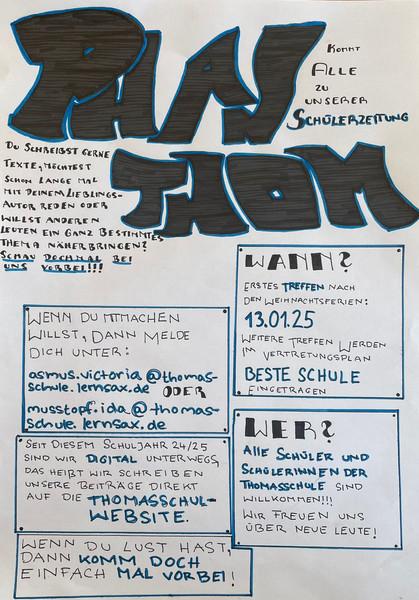 PHAN
THOM
KOMMT
ALLE
ZU
UNSERER
SCHÜLERZEITUNG
DU SCHREIBST GERNE
TEXTE, MÖCHTEST
SCHON LANGE MAL
MIT DEINEM LIEBLINGS-
AUTOR REDEN ODER
WILLST ANDEREN
LEUTEN EIN GANZ BESTIMMTES
THEMA NÄHERBRINGEN?
SCHAU DOCHMAL BEI
UNS VORBEI!!!
WANN?
ERSTES TREFFEN NACH
DEN WEIHNACHTSFERIEN:
13.01.25
WEITERE TREFFEN WERDEN
IM VERTRETUNGSPLAN
BESTE SCHULE
EINGETRAGEN
WENN DU MITMACHEN
WILLST, DANN MELDE
DICH UNTER:
asmus.victoria@thomas-
schule.lernsax.de ODER
musstopf.ida@thomas-
schule.lernsax.de
WER?
ALLE SCHÜLER UND
SCHÜLERINNEN DER
THOMASSCHULE SIND
WILLKOMMEN!!!
WIR FREUEN UNS
ÜBER NEUE LEUTE!
SEIT DIESEM SCHULJAHR 24/25
SIND WIR DIGITAL UNTERWEGS,
DAS HEIẞT WIR SCHREIBEN
UNSERE BEITRÄGE DIREKT
AUF DIE THOMASSCHUL-
WEBSITE.
WENN DU LUST HAST,
DANN KOMM DOCH
EINFACH MAL VORBEI!